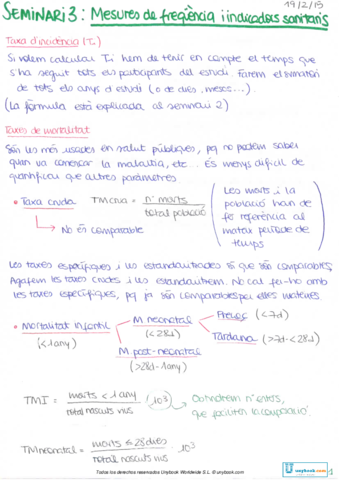 19/2/15
SEMINARI 3: Mesures de freqüència i indicadors sanitaris
Taxa d'incidència (Ti)
Si volem calcular Ti hem de tenir en compte el temps que
s'ha seguit tots els participants del estudi. Farem el sumatori
de tots els anys d'estudi (o de dies, mesos...).
(La fórmula està explicada al seminari 2)
Taxes de mortalitat
Són les més usades en salut públiques, pq no podem saber
quan va començar la malaltia, etc... És menys difícil de
quantificar que altres paràmetres
• Taxa cruda TMcrua = nº morts / total població
(Les morts i la
població han de
fe referència al
mateix període de
temps)
→ No és comparable
Les taxes específiques i les estandaritzades sí que són comparables.
Agafem les taxes crudes i les estandaritzem. No cal fer-ho amb
les taxes específiques, pq ja són comparables per elles mateixes.
• Mortalitat infantil
(<1any)
M neonatal
(<28d)
Precoç (<7d)
Tardana (>7d-<28d)
M post-neonatal
(>28d-1any)
TMI = morts <1 any / total nascuts vius · 10³
Obtindrem nº enters,
que faciliten la comparació.
TMneonatal = morts ≤ 28 dies / total nascuts vius · 10³
Todos los derechos reservados Unybook Worldwide S.L. © unybook.com
U unybook.com
1